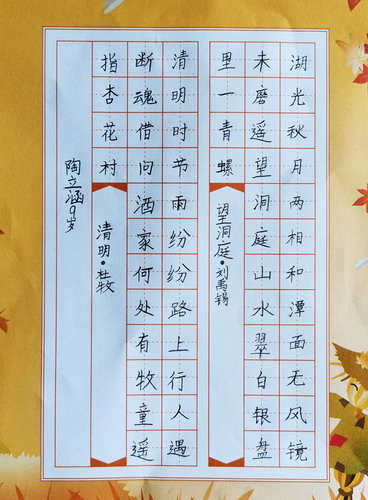 湖光秋月两相和潭面无风镜
未磨遥望洞庭山水翠白银盘
里一青螺
望洞庭·刘禹锡
清明时节雨纷纷路上行人遇
断魂借问酒家何处有牧童遥
指杏花村
清明·杜牧
陶立涵9岁